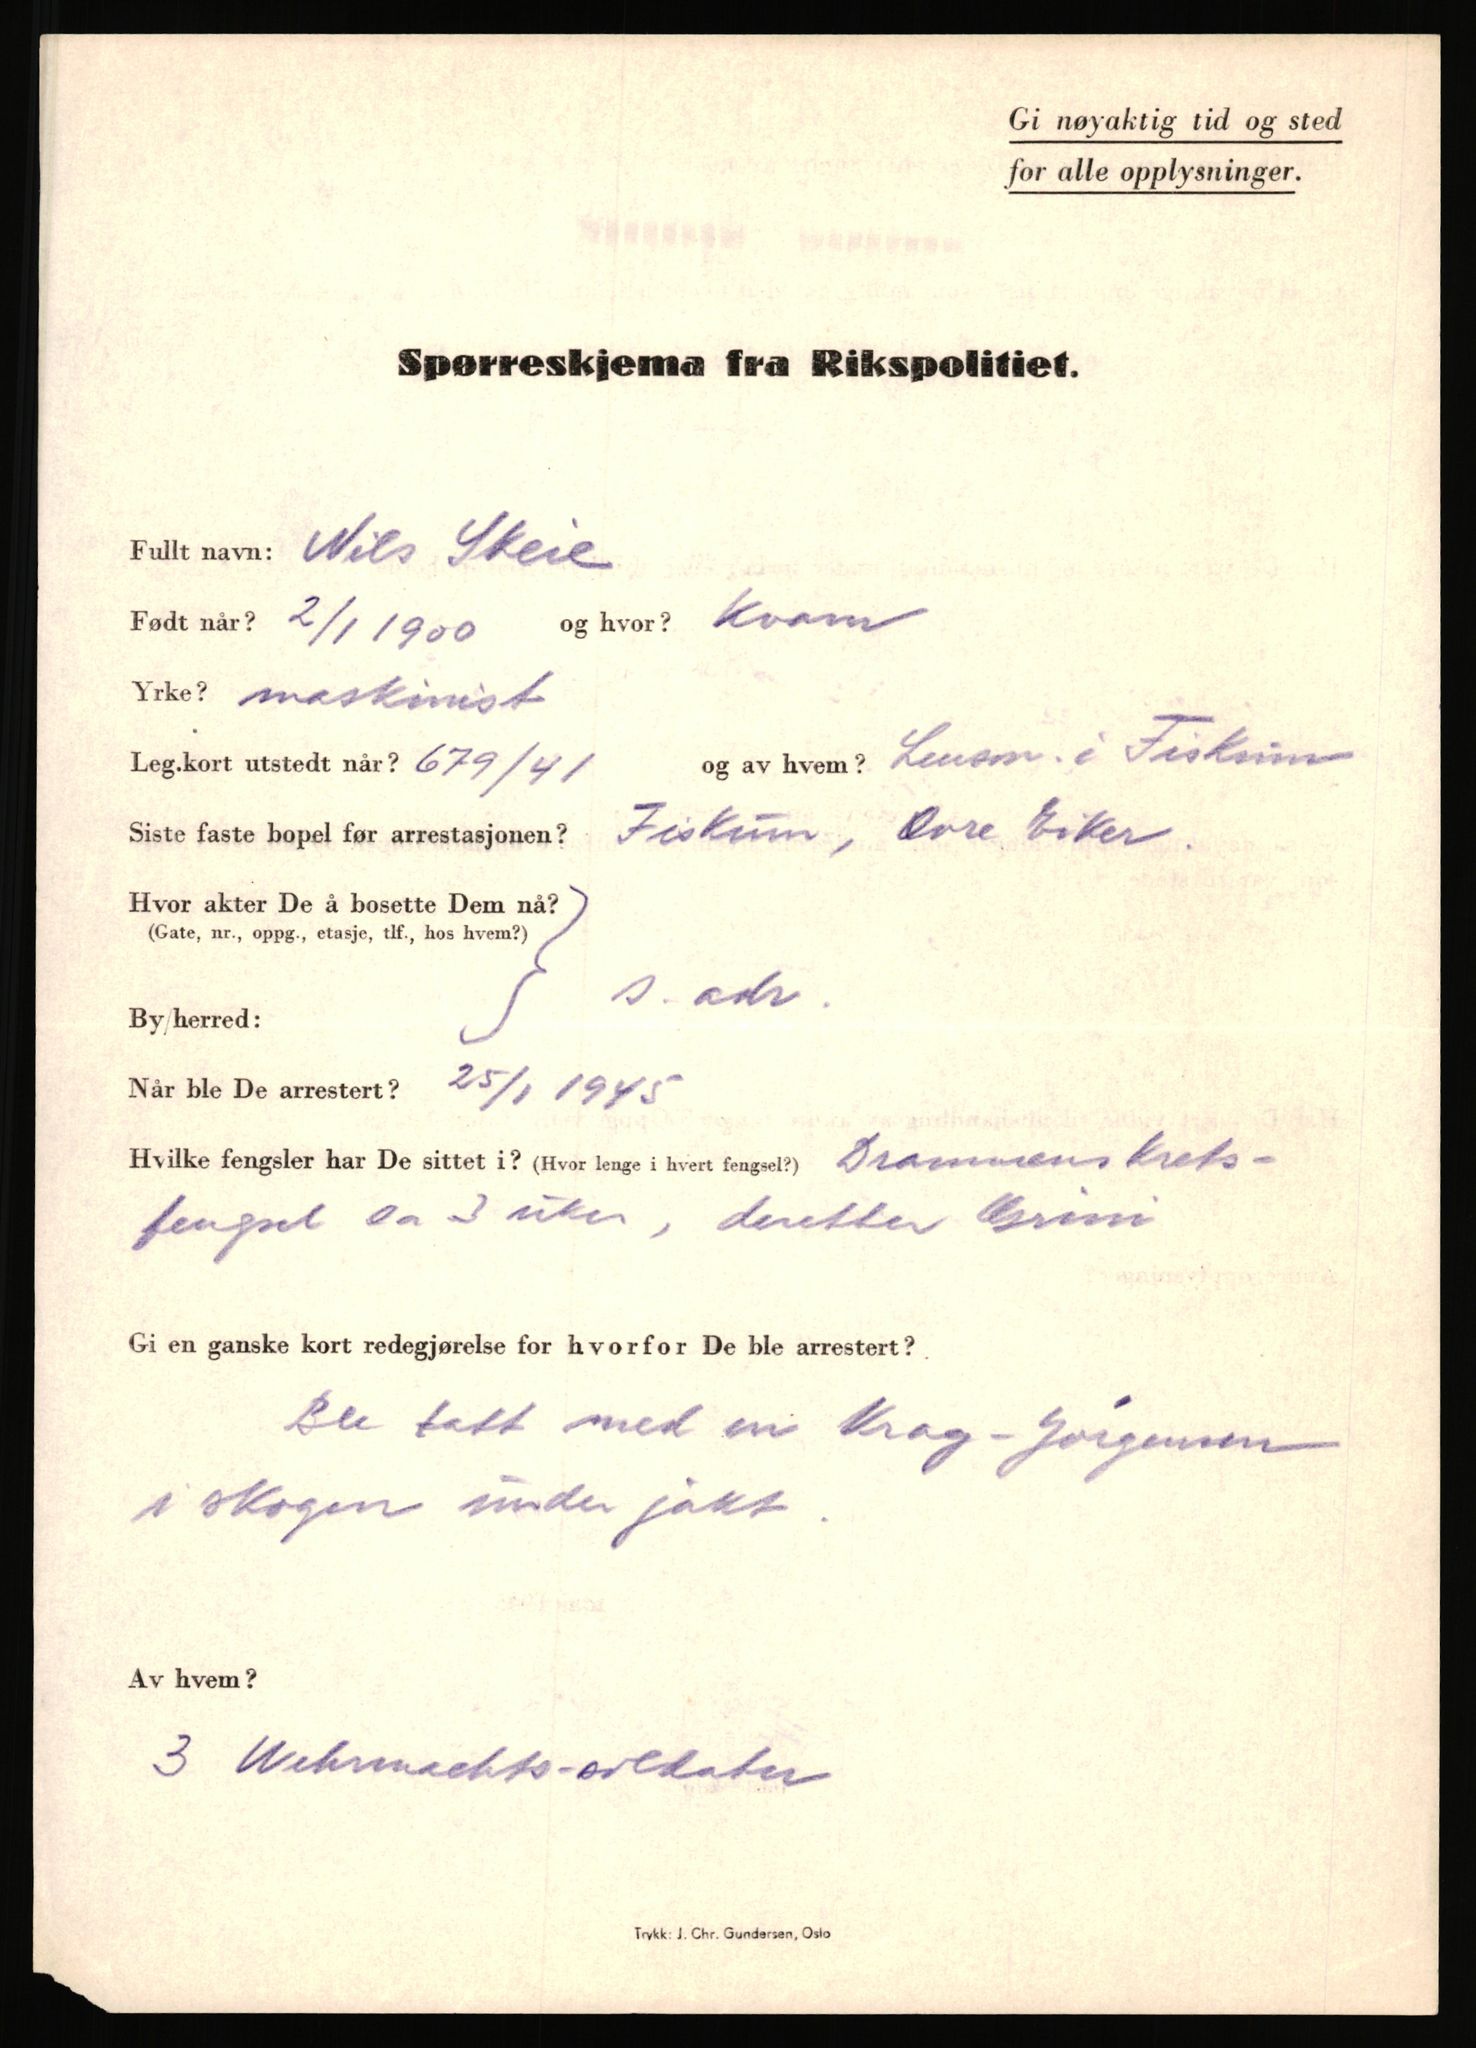 Gi nøyaktig tid og sted
for alle opplysninger.
Spørreskjema fra Rikspolitiet.
Fullt navn: Nils Skeie
Født når? 2/1 1900 og hvor? Kvam
Yrke? maskinist
Leg.kort utstedt når? 679/41 og av hvem? Lensm. i Fiskum
Siste faste bopel før arrestasjonen? Fiskum, Øvre Eiker.
Hvor akter De å bosette Dem nå?
(Gate, nr., oppg., etasje, tlf., hos hvem?)
s. adr.
By/herred:
Når ble De arrestert? 25/1 1945
Hvilke fengsler har De sittet i? (Hvor lenge i hvert fengsel?) Drammens krets-
fengsel ca 3 uker, deretter Grini
Gi en ganske kort redegjørelse for hvorfor De ble arrestert?
Ble tatt med en Krag-Jörgensen
i skogen under jakt.
Av hvem?
3 Wehrmachts-soldater
Trykk: J. Chr. Gundersen, Oslo